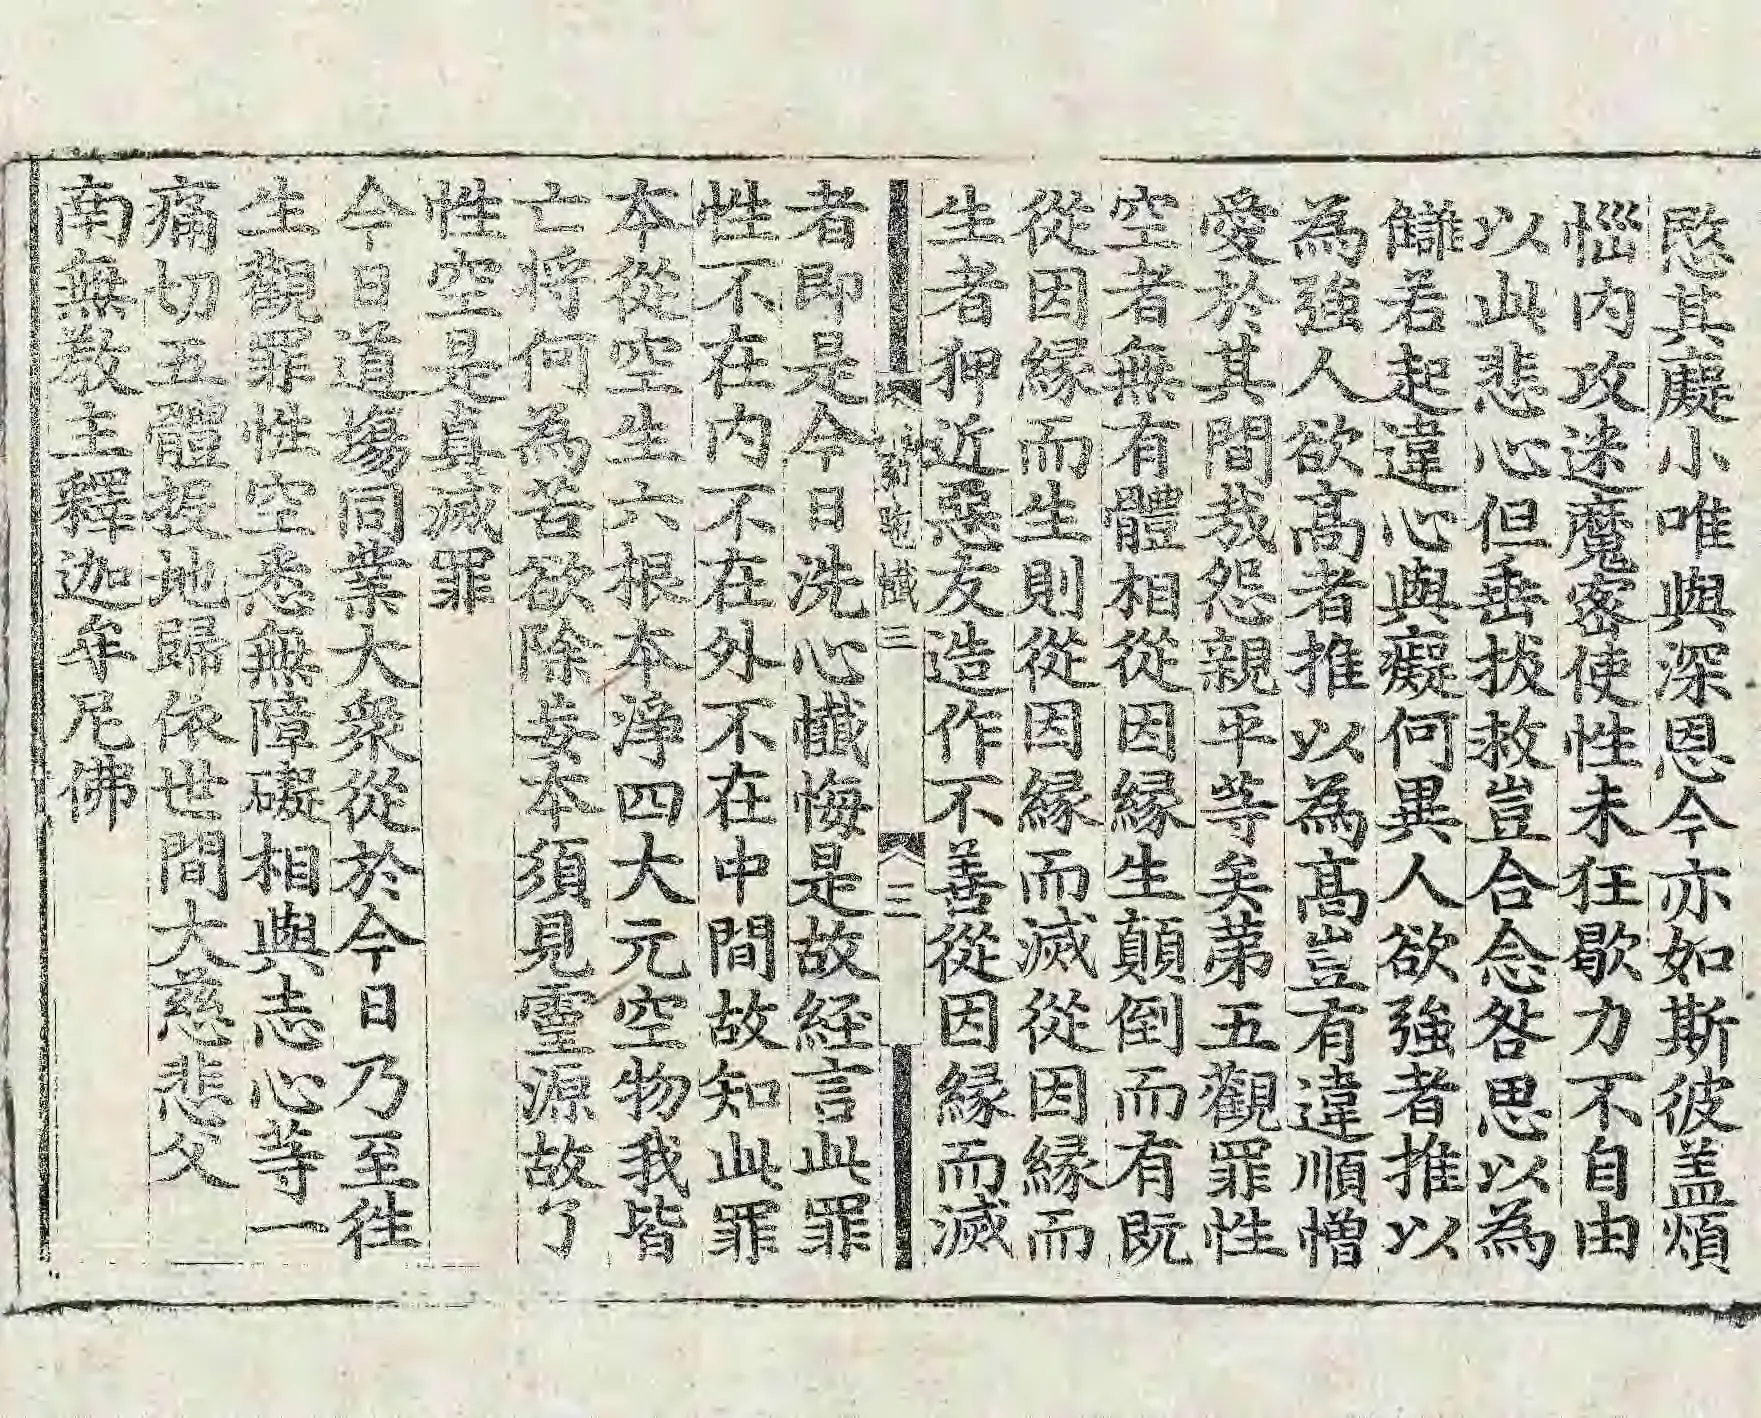 愍其癡小唯與深恩今亦如斯彼盖煩
惱内攻迷魔密使性未狂歇力不自由
以此悲心但垂拔救豈合念咎思以為
讎若起違心與癡何異人欲強者推以
為強人欲高者推以為高豈有違順憎
愛於其間哉怨親平等矣苐五觀罪性
空者無有體相從因縁生顛倒而有既
從因縁而生則從因縁而滅從因縁而
生者狎近惡友造作不善從因縁而滅
懺三
三
者即是今日洗心懺悔是故経言此罪
性不在内不在外不在中間故知此罪
本從空生六根本淨四大元空物我皆
亡将何為苦欲除妄本須見靈源故了
性空是真滅罪
今日道塲同業大衆從於今日乃至徃
生觀罪性空悉無障礙相與志心等一
痛切五體投地歸依世間大慈悲父
南無教主釋迦牟尼佛